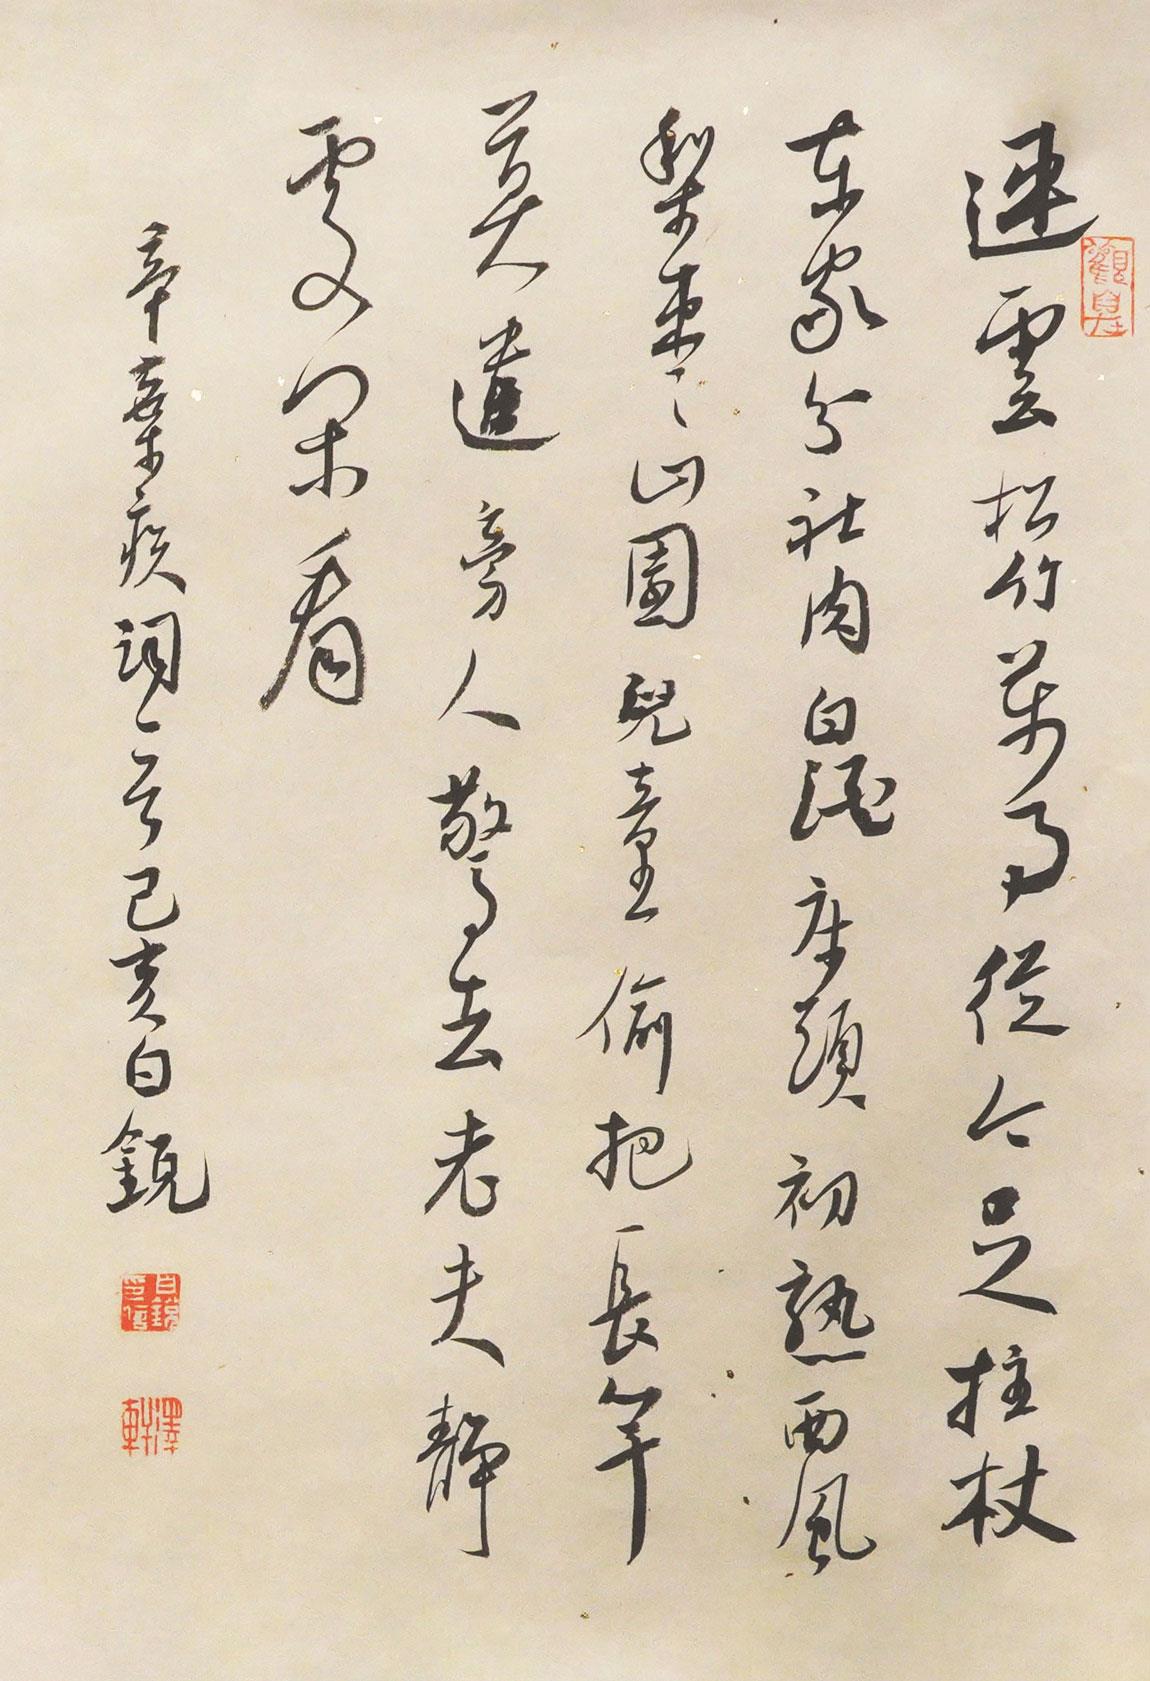 連雲松竹萬事從今足拄杖
東家分社肉白酒床頭初熟西風
梨枣山園兒童偷把長竿
莫遣旁人驚去老夫靜
處閑看
辛棄疾詞一首己亥白銳
白銳印信
澤軒